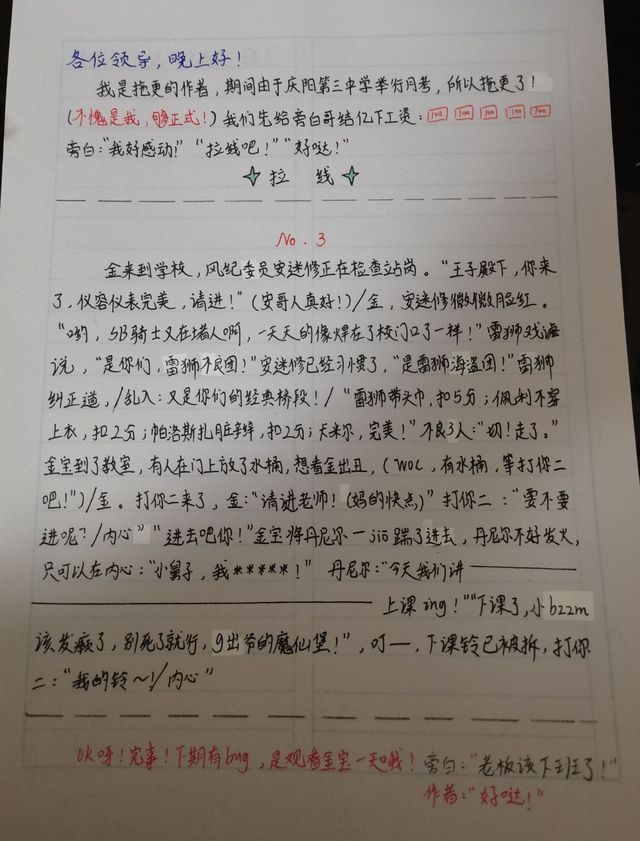 各位领导，晚上好！
我是拖更的作者，期间由于庆阳第三中学举行月考，所以拖更了！
(不愧是我，够正式！) 我们先给旁白哥结亿下工资：100 100 100 100 100
旁白："我好感动！" "拉线吧！" "好哒！"
拉 线
No.3
金来到学校，风纪委员安迷修正在检查站岗。"王子殿下，你来
了，仪容仪表完美，请进！" (安哥人真好！)/金，安迷修微微脸红。
"哟，SB骑士又在堵人啊，一天天的像焊在了校门口了一样！" 雷狮戏谑
说，"是你们，雷狮不良团！" 安迷修已经习惯了，"是雷狮海盗团！" 雷狮
纠正道，/乱入：又是你们的经典桥段！/ "雷狮带头巾，扣5分；佩利不穿
上衣，扣2分；帕洛斯扎脏辫，扣2分；卡米尔，完美！" 不良3人："切！走了。"
金宝到了教室，有人在门上放了水桶，想看金出丑，(woc，有水桶，等打你二
吧！")/金。打你二来了，金："请进老师！(妈的快点)" 打你二："要不要
进呢？/内心" "进去吧你！" 金宝将丹尼尔一jio踹了进去，丹尼尔不好发火，
只可以在内心："小舅子，我*****！" 丹尼尔："今天我们讲————
————上课ing！" "下课了，小bzzm
该发癫了，别死了就行，g出爷的魔仙堡！"，叮一，下课铃已被拆，打你
二："我的铃～！/内心"
OK呀！完事！下期有bug，是观看金宝一天哦！旁白："老板该下班了！"
作者："好哒！"